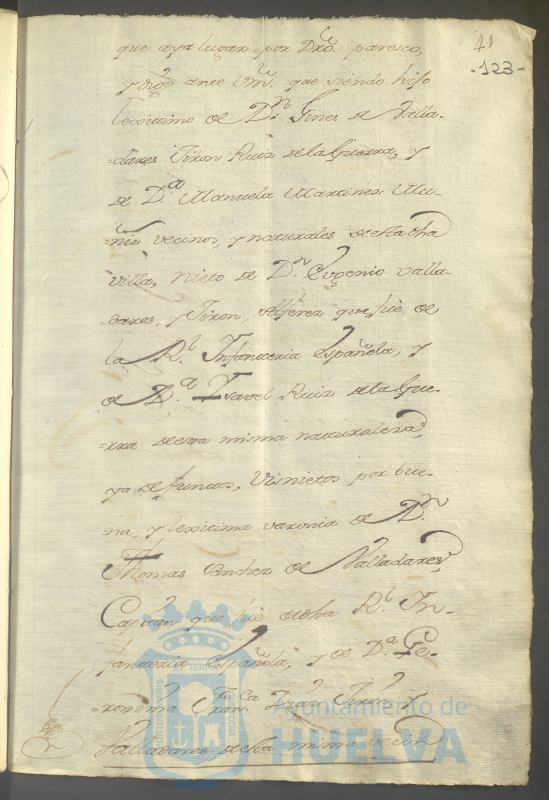 41
-123-
que aya lugar por Dro. paresco,
y digo ante Vm. que siendo hijo
lexitimo de Dn. Gines de Valla-
dares Tixon Ruiz de la Guerra, y
de Da. Manuela Martines Mu-
=ñis vecinos, y naturales de esta dha
villa, Nieto de Dn. Eugenio Valla-
dares, y Tixon, Alferez que fue de
la Rl. Infanteria Española, y
de Da. Ysavel Ruiz de la Gue-
=rra de esta misma naturaleza,
ya difuntos, Visnieto, por bue-
na, y lexitima varonia de Dn.
Thomas Sanchez de Valladares,
Capitan que fue de dha Rl. In-
fanteria Española, y de Da. Ge-
=ronima Tixon y
Valladares de esta misma vecin
Ayuntamiento de
HUELVA